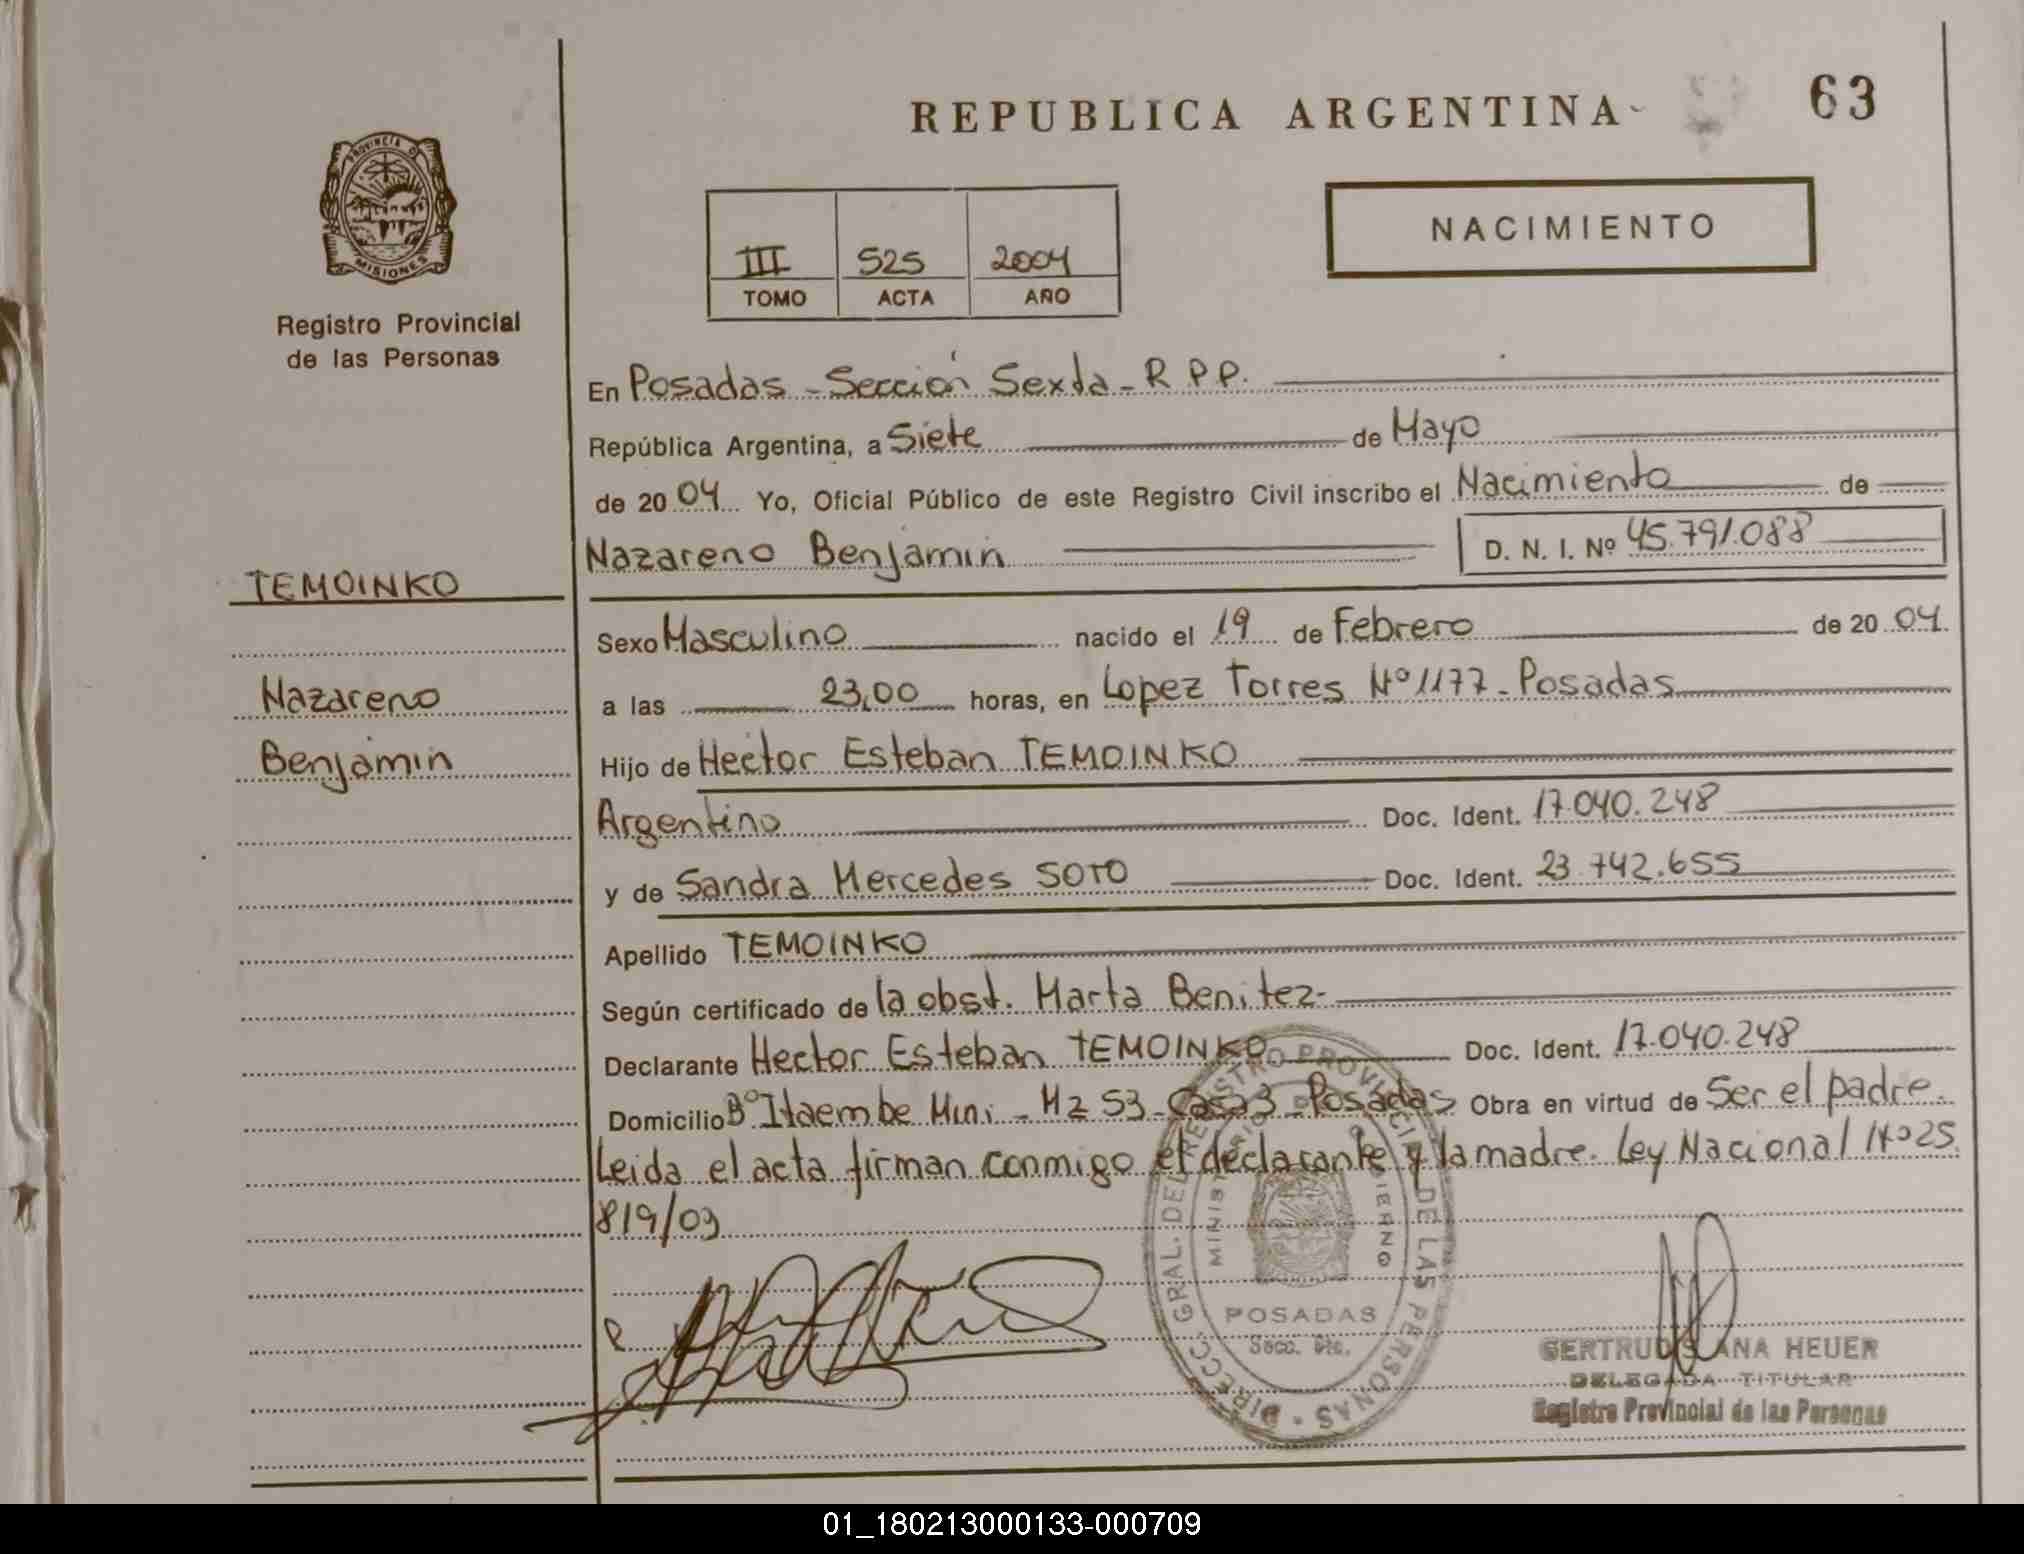 REPUBLICA ARGENTINA
63
PROVINCIA D
MISIONES
Registro Provincial
de las Personas
NACIMIENTO
III 525 2004
TOMO ACTA AÑO
En Posadas - Sección Sexta - R P P.
República Argentina, a Siete de Mayo
de 20 04 Yo, Oficial Público de este Registro Civil inscribo el Nacimiento de
Nazareno Benjamin D. N. I. Nº 45.791.088
TEMOINKO
Nazareno
Benjamin
Sexo Masculino nacido el 19 de Febrero de 20 04.
a las 23,00 horas, en Lopez Torres Nº 1177 - Posadas
Hijo de Hector Esteban TEMOINKO
Argentino Doc. Ident. 17.040.248
y de Sandra Mercedes SOTO Doc. Ident. 23.742.655
Apellido TEMOINKO
Según certificado de la obst. Marta Benitez-
Declarante Hector Esteban TEMOINKO Doc. Ident. 17.040.248
Domicilio Bº Itaembe Mini - Mz 53 - Casa 3 - Posadas Obra en virtud de Ser el padre.
Leida el acta firman conmigo el declarante y la madre. Ley Nacional Nº 25.
819/03
DIRECC. GRAL. DEL REGISTRO PROVINCIAL DE LAS PERSONAS
MINISTERIO DE GOBIERNO
POSADAS
GERTRUDIS ANA HEUER
DELEGADA TITULAR
Registro Provincial de las Personas
01_180213000133-000709